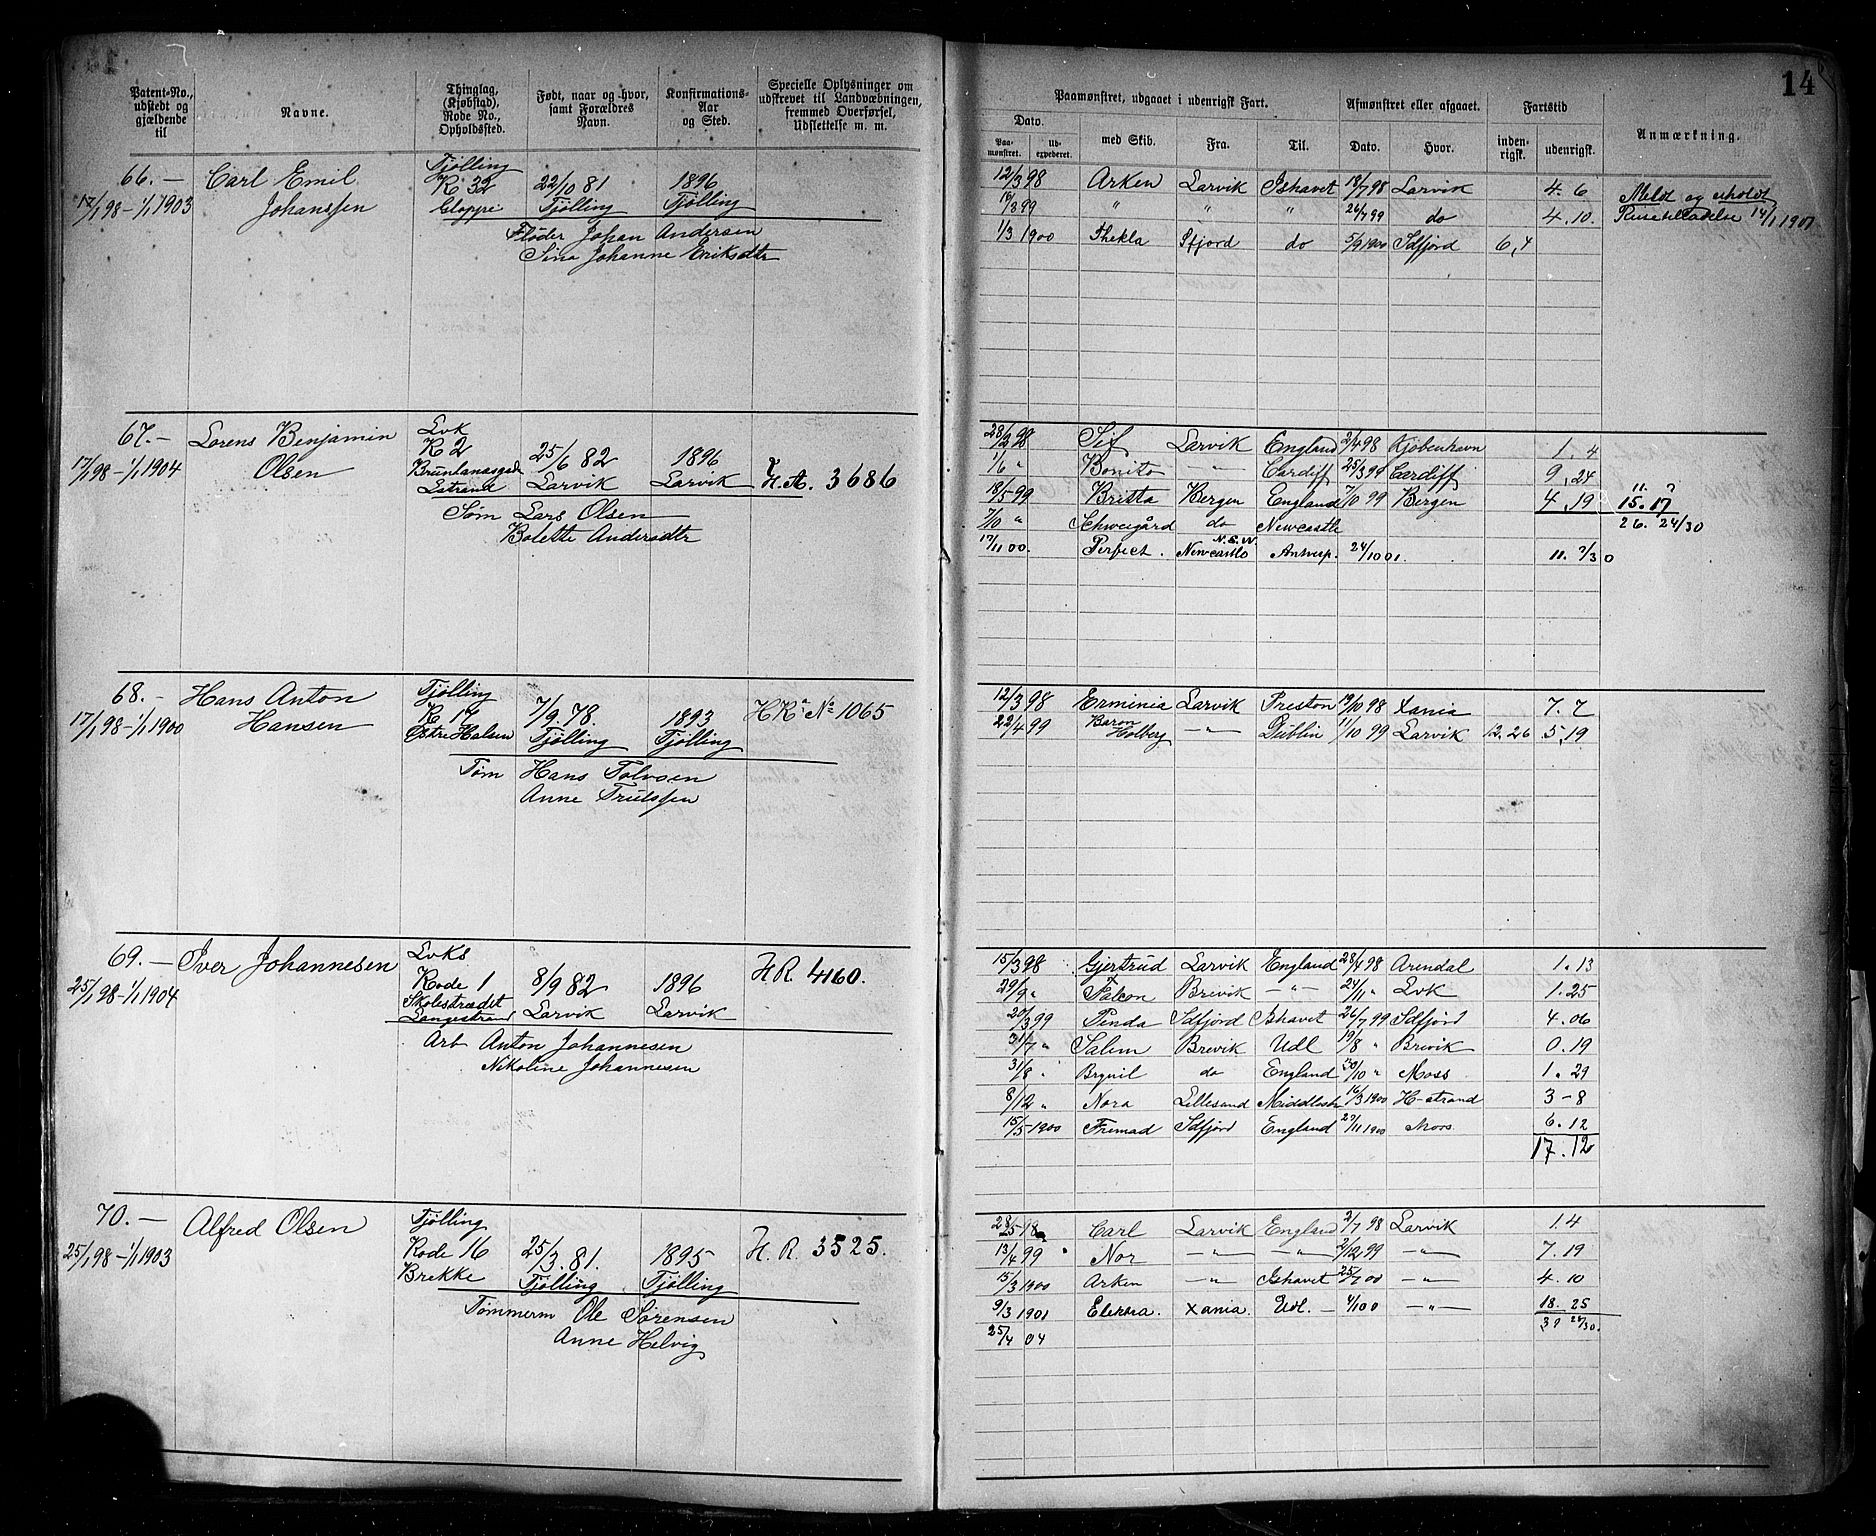 14
Patent-No., udstedt og gjældende til
Navne.
Thinglag, (Kjøbstad), Rode No., Opholdssted.
Født, naar og hvor, samt Forældres Navn.
Konfirmations-Aar og Sted.
Specielle Oplysninger om udskrevet til Landværnet, fremmed Overførsel, Udslettelse m. m.
Paamønstret, udgaaet i udenrigsk Fart.
Afmønstret eller afgaaet.
Fartstid
Anmærkning.
Dato.
Paa-mønstret.
Ud-expederet.
med Skib.
Fra.
Til.
Dato.
Hvor.
inden-rigsk.
udenrigsk.
66.— Carl Emil Johanssen
17/1 98 – 1/1 1903
Tjølling
R. 32
22/10 81 Tjølling
1896 Tjølling
Fløder Johan Andersen
Sina Johanne Eriksdtr
12/3 98 Arken Larvik Ishavet 18/7 98 Larvik 4. 6
/3 99 " " " 26/7 99 do 4. 10.
1/3 1900 Thekla Sfjord do 5/9 1900 Sdfjord 6, 4
Meldt og
14/1 1901
67.— Lorens Benjamin Olsen
17/1 98 – 1/1 1904
Lvk
R 2
Lstrand
25/6 82 Larvik
1896 Larvik
H.A. 3686
Søm Lars Olsen
Bolette Andersdtr
28/2 98 Sif Larvik England 2/4 98 Kjøbenhavn 1. 4
1/6 " Bonito " Cardiff 25/3 99 Cardiff 9. 24
18/5 99 Britta Bergen England 7/10 99 Bergen 4. 19
11. ?
15. 17
7/10 " Schweigård do Newcastle
26. 24/30
17/11 00. Perfect. Newcastle N.S.W. Antwerp. 24/10 01. 11. 7/30
68.— Hans Anton Hansen
17/1 98 – 1/1 1900
Tjølling
R 17
Østre Halsen
7/9. 78. Tjølling
1893 Tjølling
HR. No 1065
Tøm Hans Tolvsen
Anne Trulssen
12/3 98 Erminia Larvik Preston 19/10 98 Xania 7. 7
22/4 99 Baron Holberg —"— Dublin 11/10 99 Larvik 12. 26 5. 19
69.— Iver Johannesen
25/1 98 – 1/1 1904
Lvks
Rode 1
Skolestrædet
Langestrand
8/9 82 Larvik
1896 Larvik
H R. 4160.
Arb Anton Johannesen
Nikoline Johannesen
15/3 98 Gjertrud Larvik England 28/4 98 Arendal 1. 13
29/9 " Falcon Brevik —"— 24/11 " Lvk 1. 25
20/3 99 Penda Sdfjord Ishavet 26/7 99 Sdfjord 4. 06
31/7 " Salem Brevik Udl 19/8 " Brevik 0. 19
31/8 " do England 30/10 " Moss 1. 29
8/12 " Nora Lillesand Middlesbr 16/3 1900 H-strand 3 – 8
15/5 1900 Fremad Sdfjord England 27/11 1900 Moss 6. 12
17. 12
70.— Alfred Olsen
25/1 98 – 1/1 1903
Tjølling
Rode 16
Brekke
25/3. 81. Tjølling
1895 Tjølling
H. R. 3525.
Tømmerm Ole Sørensen
Anne Helvig
Carl Larvik England 2/7 98 Larvik 1. 4
13/4 99 Nor —"— —"— 2/12 99 —"— 7. 19
15/3 1900 Arken —"— Ishavet 25/7 00 —"— 4. 10
9/3 1901 Xania. Udl. — —"— 18. 25
25/4 04